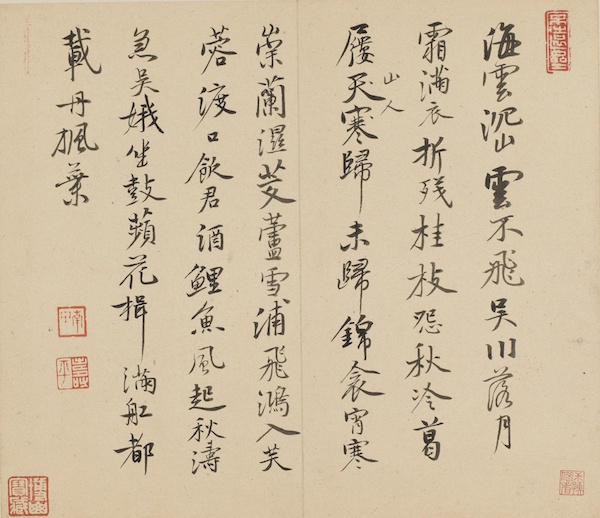 海雲沉山雲不飛吳川落月
霜滿衣折殘桂枝怨秋冷葛
屨天寒歸未歸錦衾宵寒
山人
崇蘭濕芰蘆雪浦飛鴻入芙
蓉渡口飲君酒鯉魚風起秋濤
急吳娥坐鼓蘋花楫滿舡都
載丹楓葉